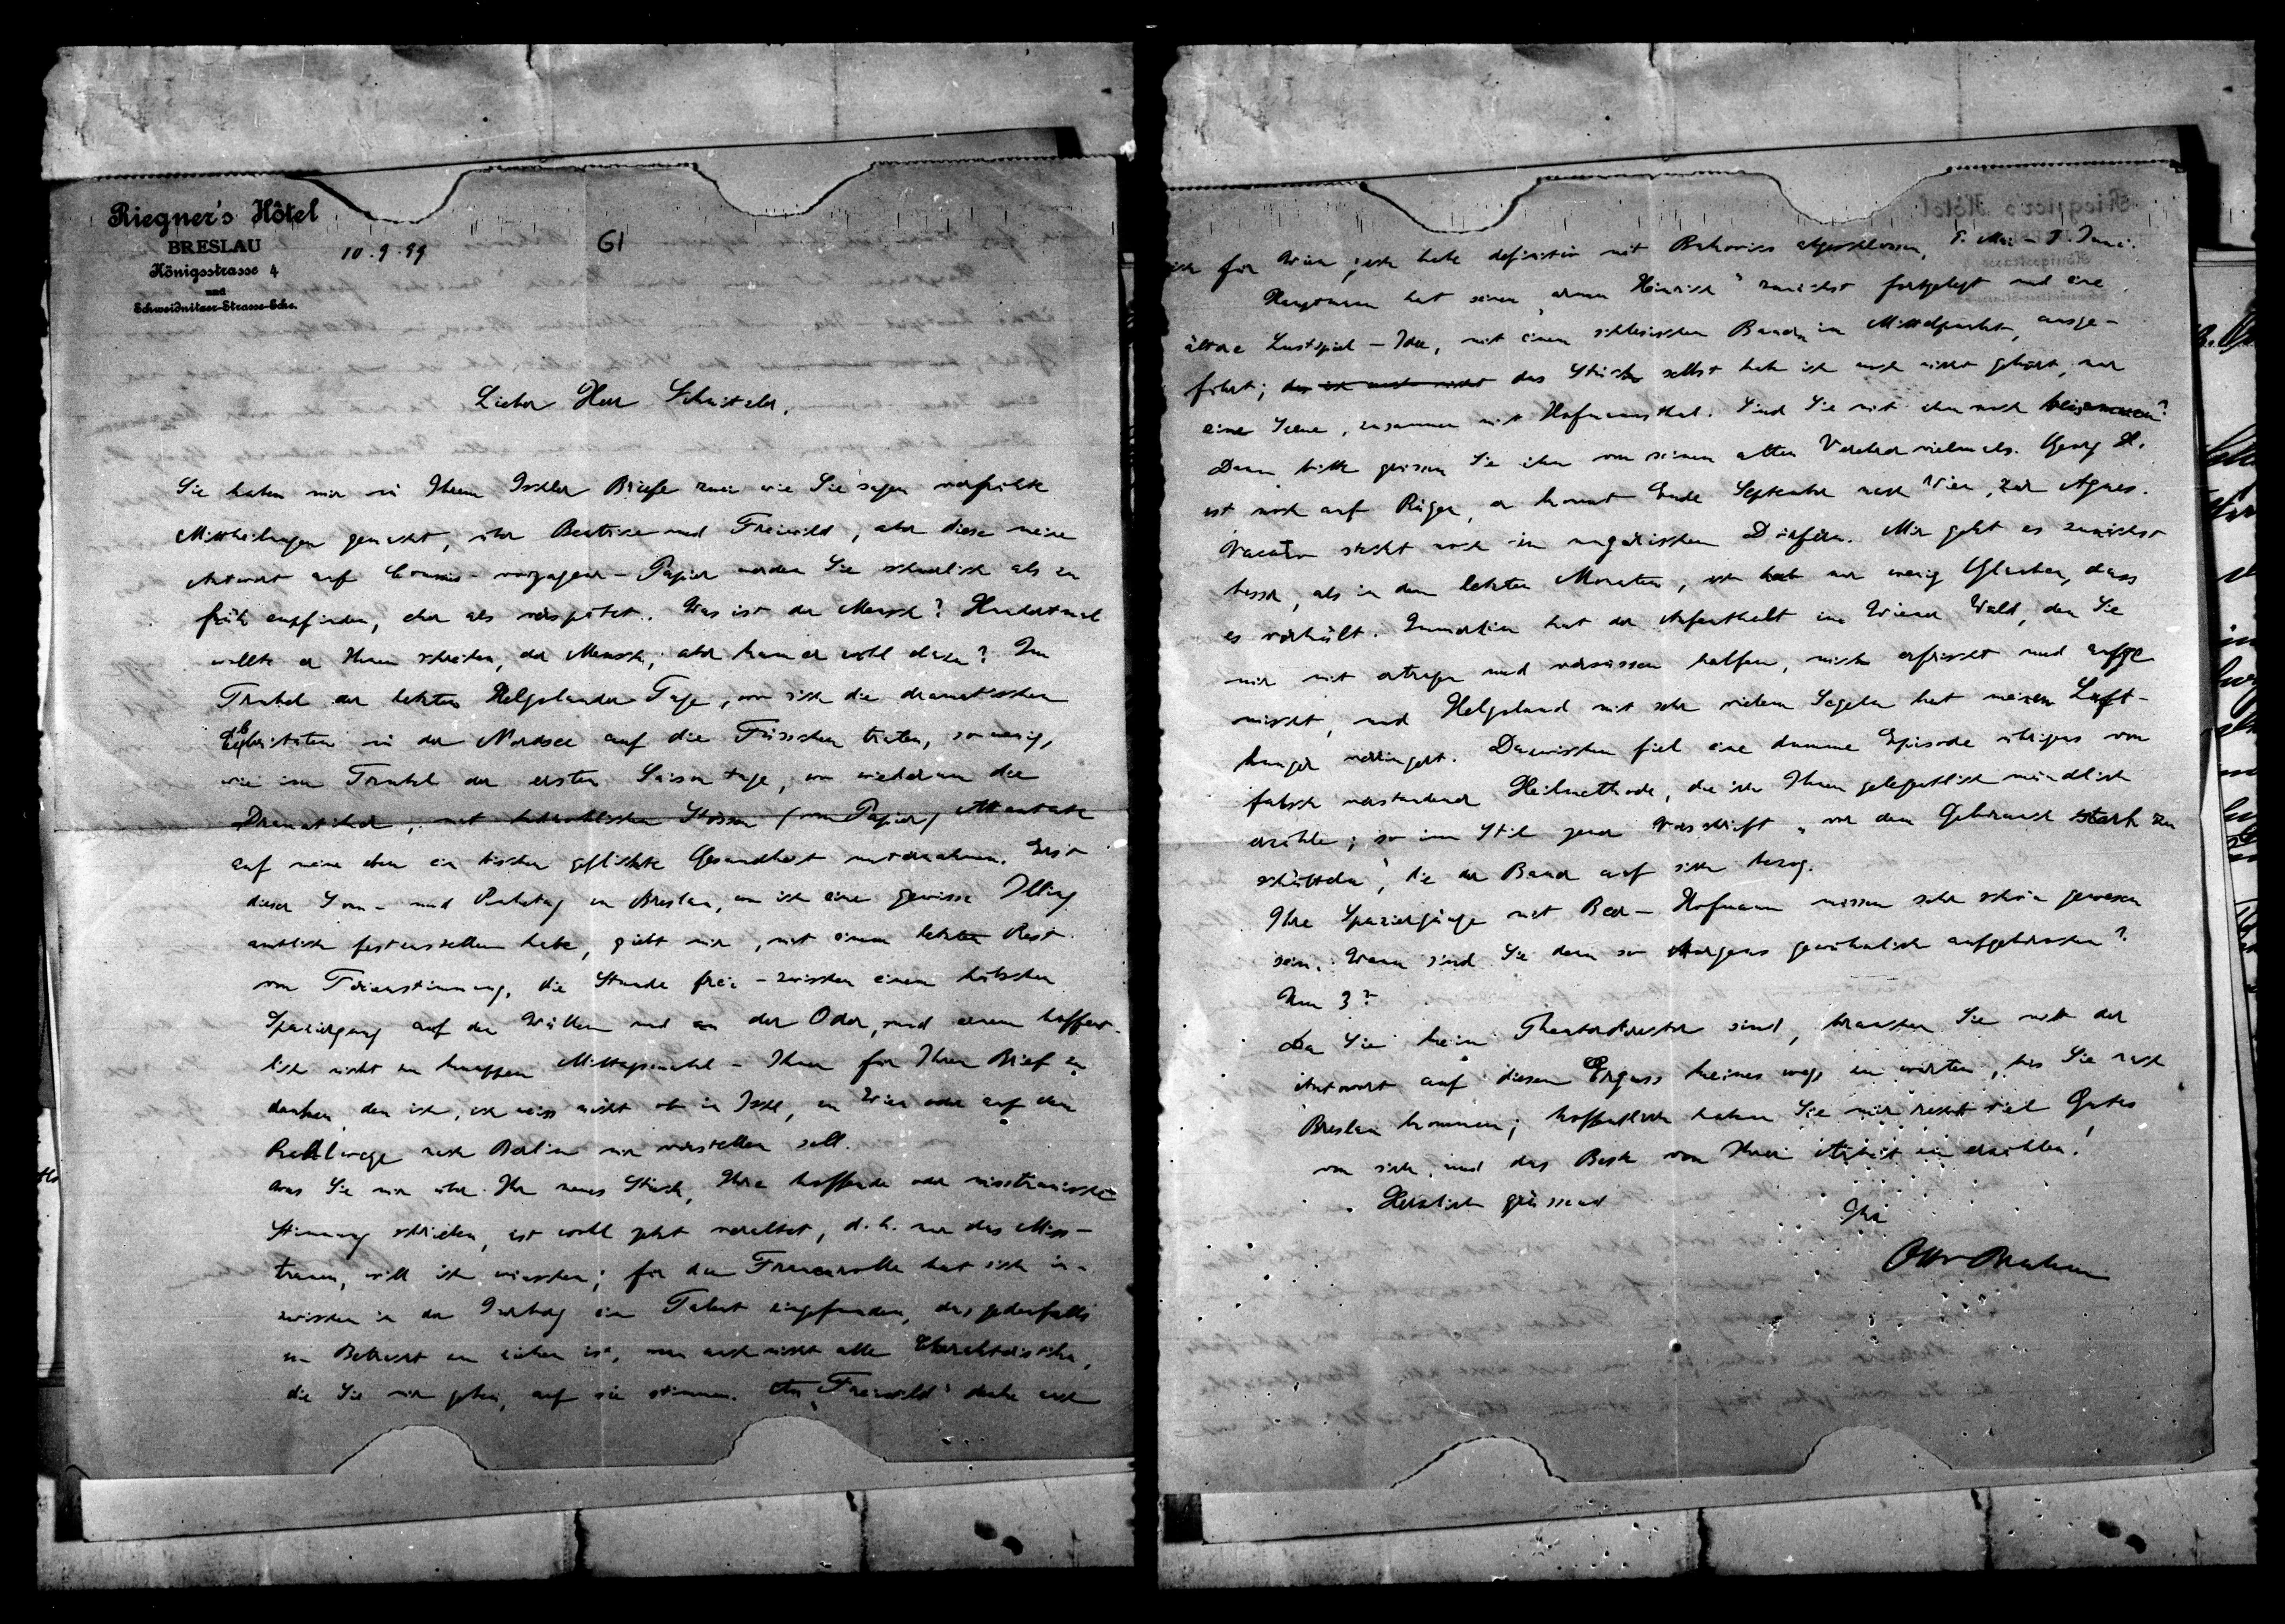 Riegner's Hôtel
BRESLAU
Königsstrasse 4
und
Schweidnitzer-Strasse-Ecke.
10.9.99
61
Lieber Herr Schnitzler,
Sie haben mir in Ihrem Ischler Briefe zwei wie Sie sagen verfrühte
Mittheilungen gemacht, über Beatrice und Freiwild, aber diese meine
Antwort auf Papier werden Sie schwerlich als zu
früh empfinden, eher als verspätet. Was ist der Mensch? Hundertmal
wollte er Ihnen schreiben, der Mensch, aber kam er wohl dazu? Im
Trubel der letzten Helgolander Tage, wo sich die dramatischen
Celebritäten in der Nordsee auf die Füsschen traten, so wenig,
wie im Trubel der ersten Saisontage, wo wiederum die
Dramatiker, mit bedrohlichen Stössen (von Papier) Attentate
auf meine eben ein bischen geflickte Gesundheit unternahmen. Erst
dieser Sonn- und Ruhetag in Breslau, wo ich eine gewisse Illing
amtlich festzustellen habe, giebt mir, mit einem letzten Rest
von Ferienstimmung, die Stunde frei – zwischen einem hübschen
Spaziergang auf den Wällen und an der Oder, und einem hoffent-
lich nicht zu knappen Mittagsmahl – Ihnen für Ihren Brief zu
danken, den ich, ich weiss nicht ob in Ischl, in Wien oder auf dem
Radlwege nach Berlin mir vorstellen soll.
Was Sie mir über Ihr neues Stück, Ihre hoffende oder misstrauische
Stimmung schrieben, ist wohl jetzt veraltet, d. h. nur das Miss-
trauen, will ich wünschen; für die Frauenrolle hat sich in-
zwischen in der Triesch ein Talent eingefunden, das jedenfalls
in Betracht zu ziehen ist, wenn auch nicht alle Charakteristika,
die Sie mir geben, auf sie stimmen. An „Freiwild“ denke auch
ich für Wien; ich habe definitiv mit Bukovics abgeschlossen, 8. Mai – 8. Juni.
Hauptmann hat seinen „armen Heinrich“ zunächst fortgelegt und eine
ältere Lustspiel-Idee, mit einem schlesischen Bauern im Mittelpunkt, ausge-
führt; das Stück selbst habe ich noch nicht gehört, nur
eine Scene, zusammen mit Hofmannsthal. Sind Sie mit ihm noch beisammen?
Dann bitte grüssen Sie ihn von seinem alten Verehrer vielmals. Georg H.
ist noch auf Rügen, er kommt Ende September nach Wien, zur Agnes.
steckt noch in ungarischen Dörfern. Mir geht es zunächst
besser, als in den letzten Monaten, ich habe nur wenig Glauben, dass
es vorhält. Immerhin hat der Aufenthalt im Wiener Wald, den Sie
mir mit ertragen und versüssen halfen, mich erfrischt und aufge-
mischt, und Helgoland mit sehr vielem Segeln hat meinen Luft-
hunger verringert. Dazwischen fiel eine dumme Episode übrigens von
falsch verstandener Heilmethode, die ich Ihnen gelegentlich mündlich
erzähle; so im Stil jener Vorschrift „vor dem Gebrauch stark zu
schütteln“, die der Bauer auf sich bezog.
Ihre Spaziergänge mit Beer-Hofmann müssen sehr schön gewesen
sein. Wann sind Sie denn so Morgens gewöhnlich aufgebrochen?
Um 3?
Da Sie kein Theaterdirector sind, brauchen Sie mit der
Antwort auf diesen Erguss keineswegs zu warten, bis Sie nach
Breslau kommen; hoffentlich haben Sie mir recht viel Gutes
von sich und das Beste von Ihrer Arbeit zu erzählen!
Herzlich grüssend
Ihr
Otto Brahm